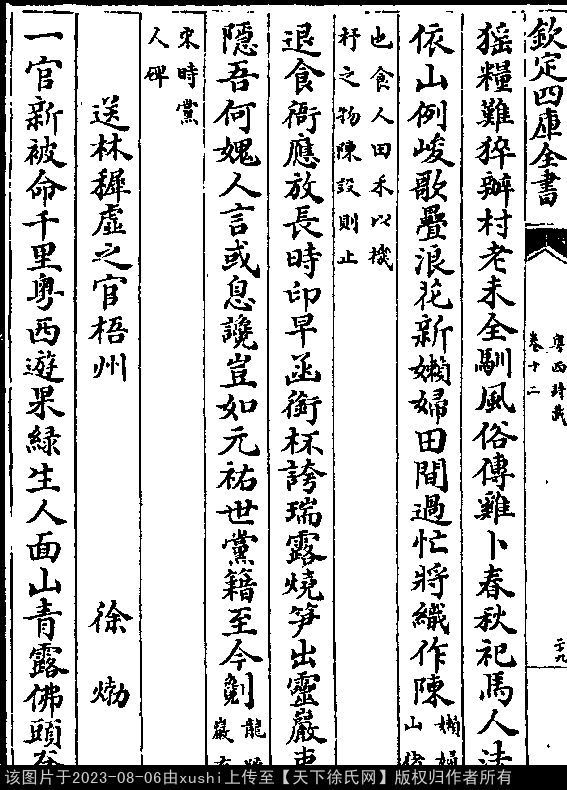 欽定四庫全書
粵西詩載
卷十二
二十九
猺糧難猝辦村老未全馴風俗傳雞卜春秋祀馬人法
依山例峻歌疊浪花新嬾婦田間過忙將織作陳
嬾婦
山
也食人田禾以機
杼之物陳設則止
退食衙應放長時印早函銜杯誇瑞露燒笋出靈巖吏
隠吾何媿人言或息讒豈如元祐世黨籍至今劖
龍
巖有
宋時黨
人碑
送林穉虛之官梧州
徐𤊹
一官新被命千里粵西遊果緑生人面山青露佛頭
该图片于2023-08-06由xushi上传至【天下徐氏网】版权归作者所有